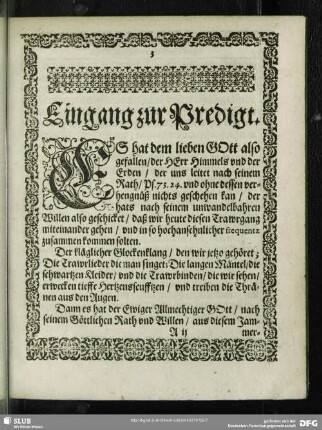 3
Eingang zur Predigt.
ES hat dem lieben GOtt also
gefallen / der HErr Himmels vnd der
Erden / der uns leitet nach seinem
Rath / Ps. 73. 24. vnd ohne dessen ver-
hengnüß nichts geschehen kan / der
hats nach seinem unwandelbahren
Willen also geschicket / daß wir heute diesen Trawrgang
miteinander gehen / und in so hochansehnlicher frequentz
zusammen kommen solten.
Der kläglicher Glockenklang / den wir jetzo gehöret;
Die Trawrlieder die man singet: Die langen Mäntel / die
schwartzen Kleider / vnd die Trawrbinden / die wir sehen /
erwecken tieffe Hertzensseufftzen / und treiben die Thrä-
nen aus den Augen.
Dann es hat der Ewiger Allmechtiger GOtt / nach
seinem Göttlichen Rath vnd Willen / aus diesem Jam-
A ij
mer-
SLUB
Wir führen Wissen.
gefördert von der
Deutschen Forschungsgemeinschaft
DFG